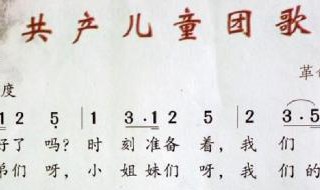 共产儿童团歌
革
度
12 5 | 1 3·12 5 | 2 3·5
好了 吗? 时 刻准备 着, 我 们
弟们 呀, 小 姐妹们 呀, 我 们的